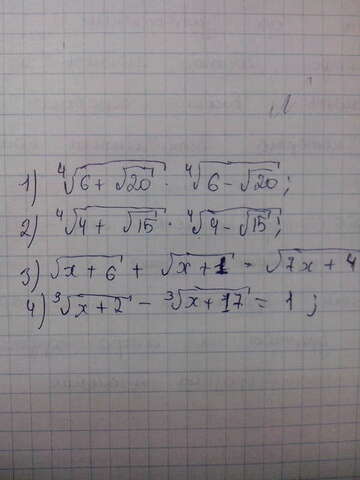 1) ⁴√(6 + √20) · ⁴√(6 − √20);
2) ⁴√(4 + √15) · ⁴√(4 − √15);
3) √(x + 6) + √(x + 1) = √(7x + 4)
4) ³√(x + 2) − ³√(x + 17) = 1;